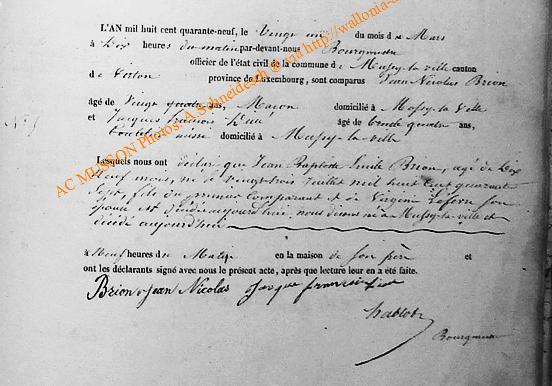 L'AN mil huit cent quarante-neuf, le Vengt un du mois de Mars
à Dix heures du matin par-devant-nous Bourgmestre
officier de l'état civil de la commune de Mussy-la-ville canton
de Virton province de Luxembourg, sont comparus Jean Nicolas Brion
âgé de Vengt quatre ans, Macon domicilié à Mussy-la Ville
et Jacques francois âgé de trente quatre ans,
domicilié à Mussy-la-ville
Lesquels nous ont déclaré que Jean Baptiste Emile Brion, agé de Dix
Neuf mois, né le Vengt trois Juillet mil huit Cent quarante
Sept, fils du premier Comparant et de Virginie Lefevre son
épouse est décédé aujourd'hui, né à Mussy-la-ville et
décédé aujourdhui
à Neuf heures du Matin en la maison de son père et
ont les déclarants signé avec nous le présent acte, après que lecture leur en a été faite.
Brion Jean Nicolas Jacque francoi
Bourgmestre
AC MUSSON Photos: A Schneidesch @ via http://www.wallonia-